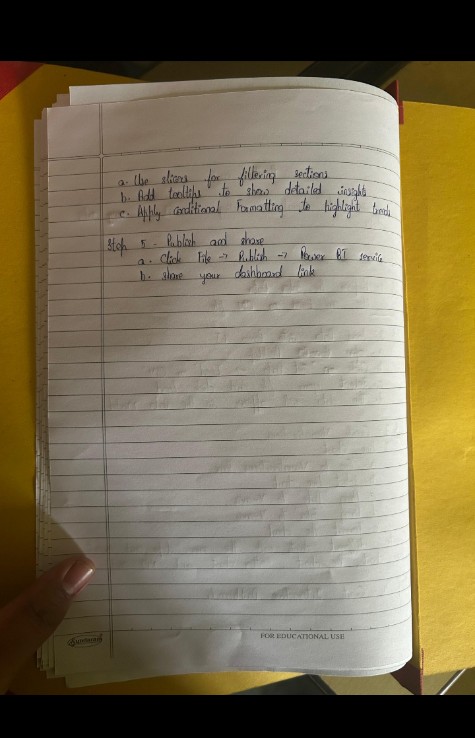 a. Use slicers for filtering sections
b. Add tooltips to show detailed insights
c. Apply conditional Formatting to highlight trends
Step 5 - Publish and share
a. Click File → Publish → Power BI service
b. Share your dashboard link
Sundaram
FOR EDUCATIONAL USE